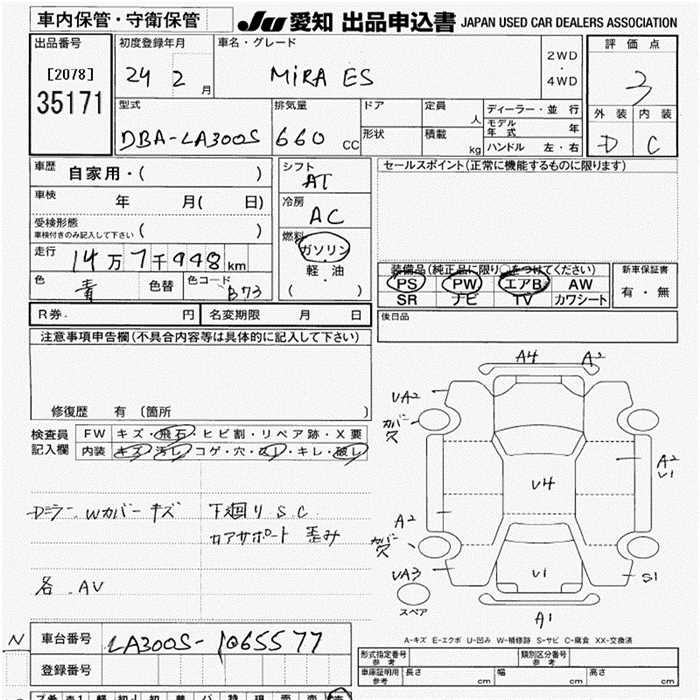 車内保管・守衛保管 JU 愛知 出品申込書 JAPAN USED CAR DEALERS ASSOCIATION
出品番号 初度登録年月 車名・グレード 評価点
[2078] 24 2 月 MiRA ES 2WD・4WD 3
35171 型式 排気量 ドア 定員 人 ディーラー・並行 外装 内装
DBA-LA300S 660 CC 形状 積載 kg モデル年式 年 D C
ハンドル 左・右
車歴 自家用・( ) シフト AT セールスポイント(正常に機能するものに限ります)
車検 年 月( 日) 冷房 AC
受検形態 車検付きのみ記入して下さい ( ) 燃料 ガソリン・軽油・( )
走行 14万7千948km
色 青 色替 色コード B73
装備品(純正品に限り○をつけてください) 新車保証書
PS PW エアB AW 有・無
SR ナビ TV カワシート
R券 円 名変期限 月 日 後日品
注意事項申告欄(不具合内容等は具体的に記入して下さい)
修復歴 有 〔箇所 〕
検査員記入欄 FW キズ・飛石・ヒビ割・リペア跡・X要
内装 キズ・汚レ・コゲ・穴・ヌレ・キレ・破レ
Dミラー、Wカバーキズ 下廻り S.C
コアサポート 歪み
各 AV
A4 A2
UA2
カバー欠
A2
U1
U4
A2
カバー欠
UA3
U1
S1
スペア
A1
A-キズ E-エクボ U-凹み W-補修跡 S-サビ C-腐食 XX-交換済
N 車台番号 LA300S-1065577
登録番号
形式指定番号 参考 類別区分番号 参考
車庫証明用 参考 長さ cm 幅 cm 高さ cm